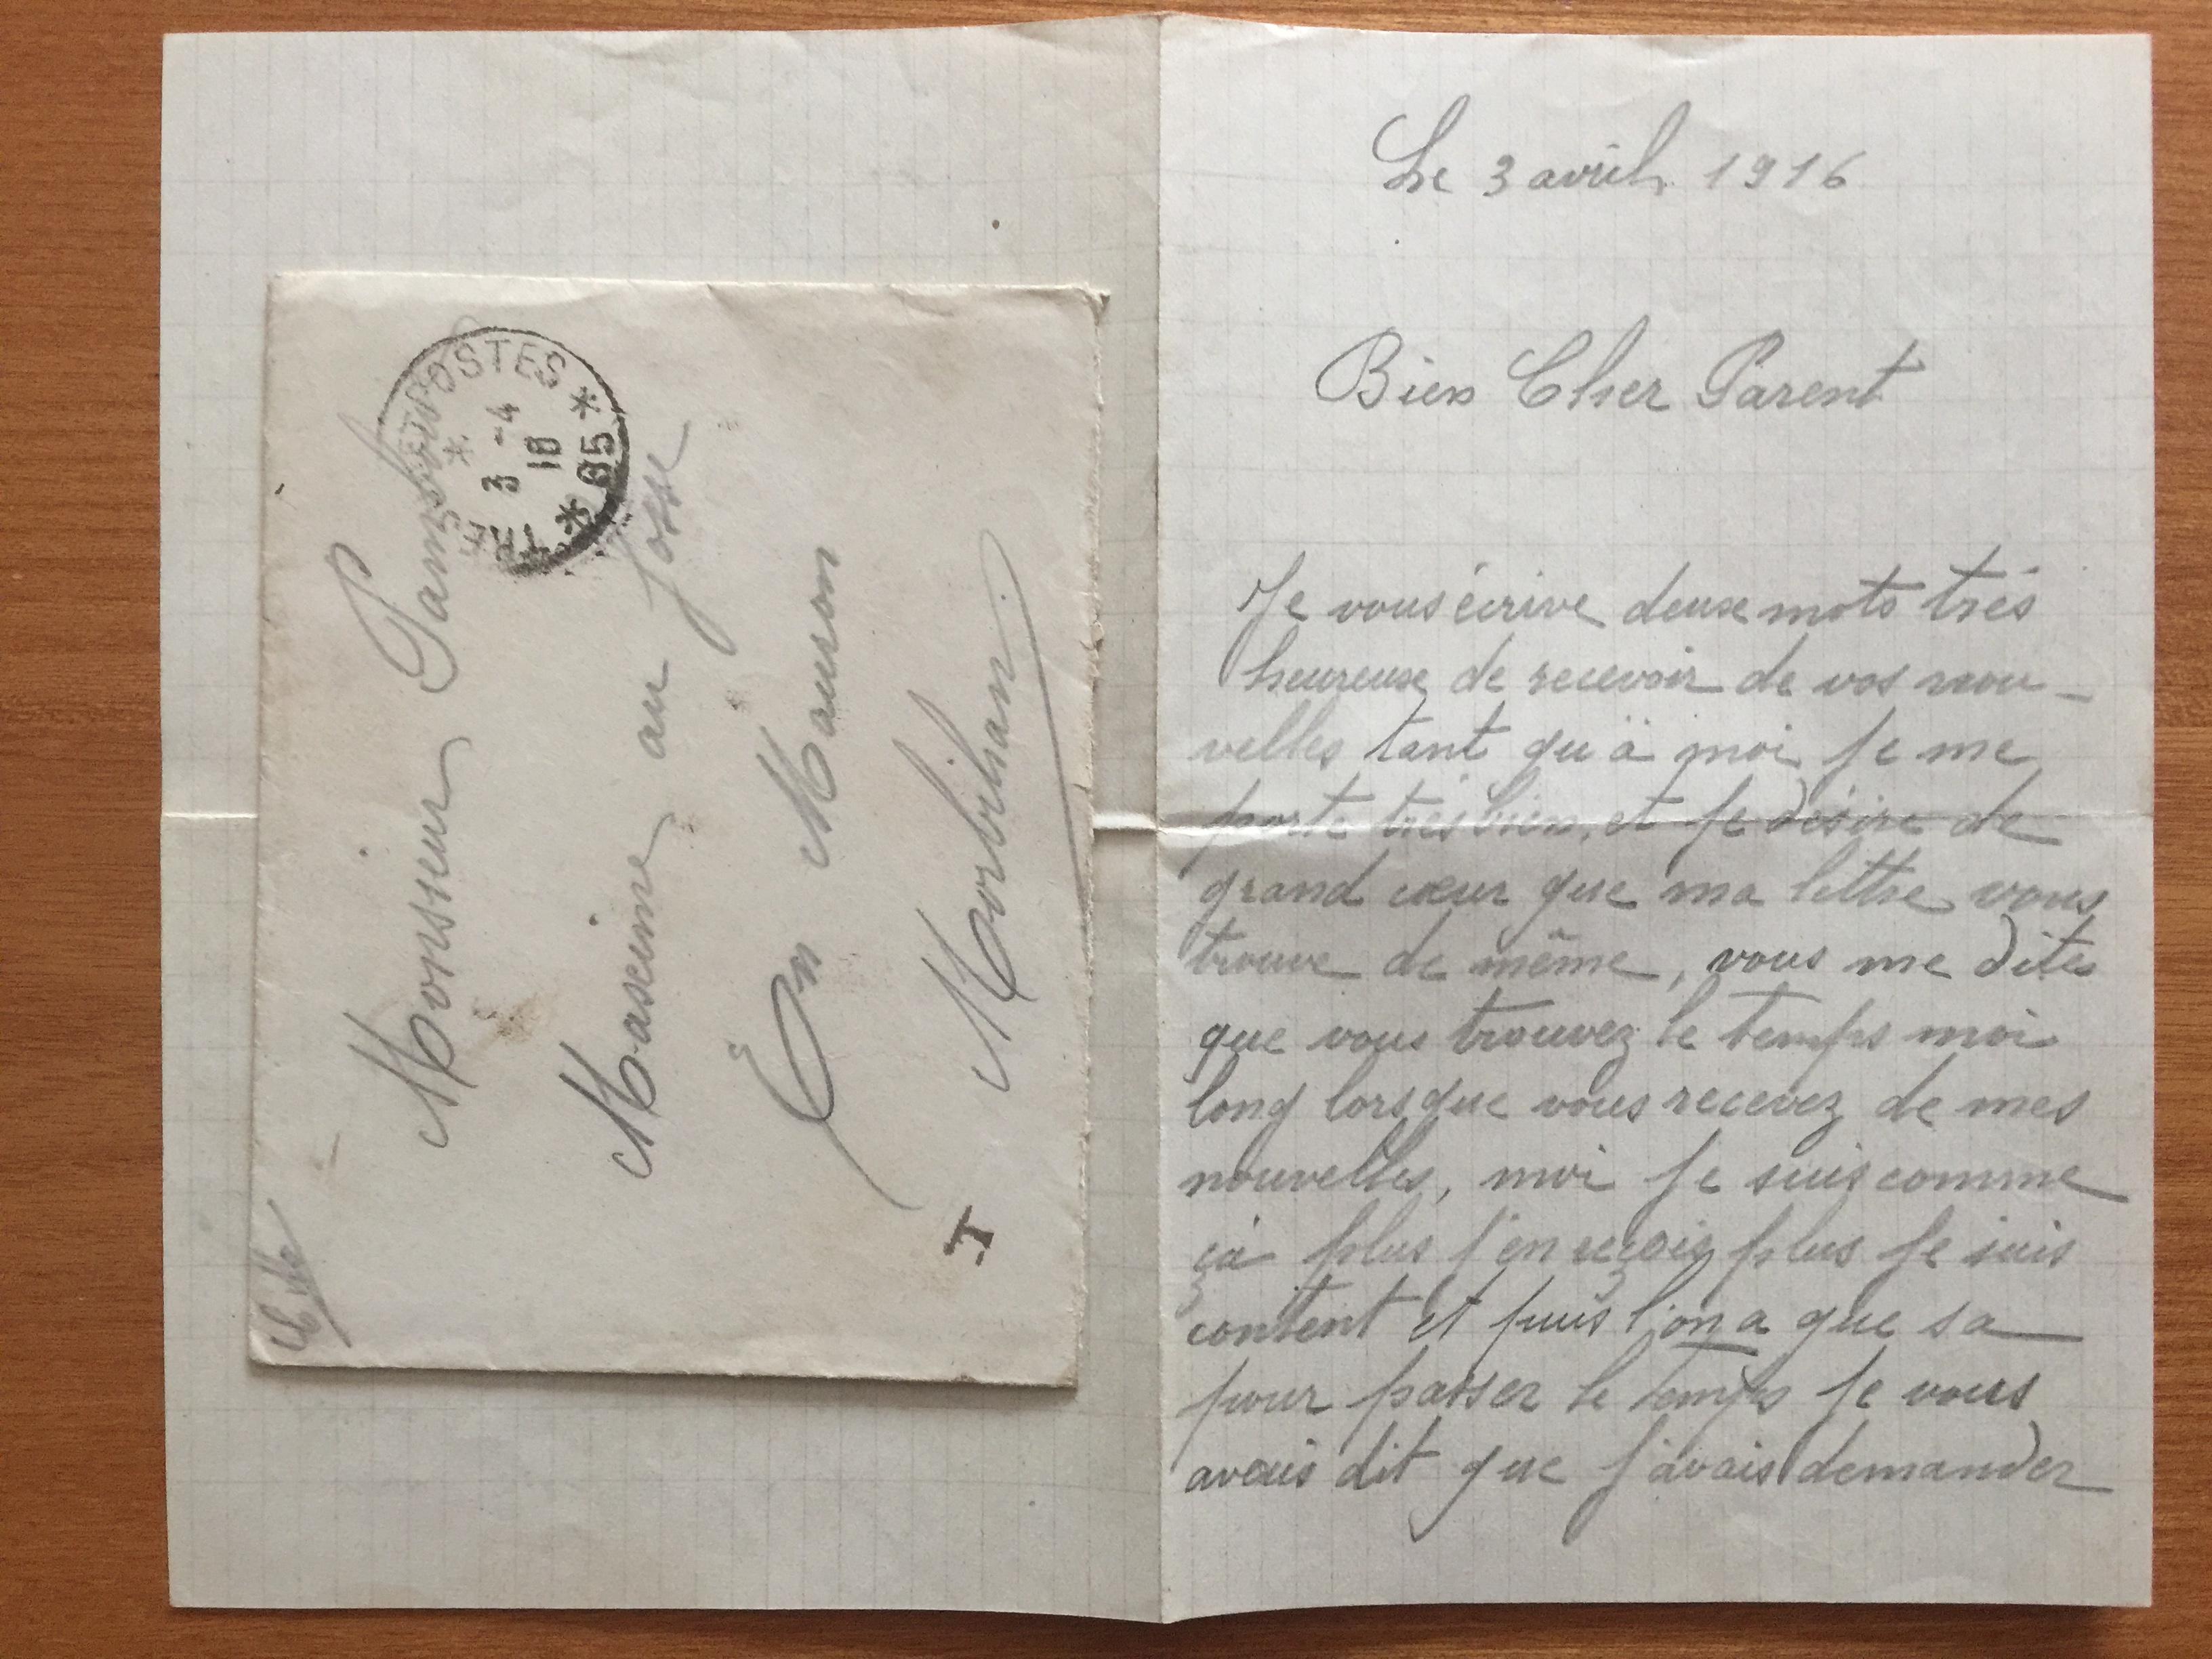 Monsieur
Maxime au fosse
En Mauron
Morbihan
TRE ET POSTES
3 -4
16
* *
T
Le 3 avril 1916
Bien Cher Parent
Je vous écrive deux mots très
heureuse de recevoir de vos nou-
velles tant qu'à moi je me
porte très bien, et je désire de
grand cœur que ma lettre vous
trouve de même, vous me dites
que vous trouvez le temps moi
long lorsque vous recevez de mes
nouvelles, moi je suis comme
ça plus j'en reçois plus je suis
content et puis l'on a que sa
pour passer le temps je vous
avais dit que j'avais demander